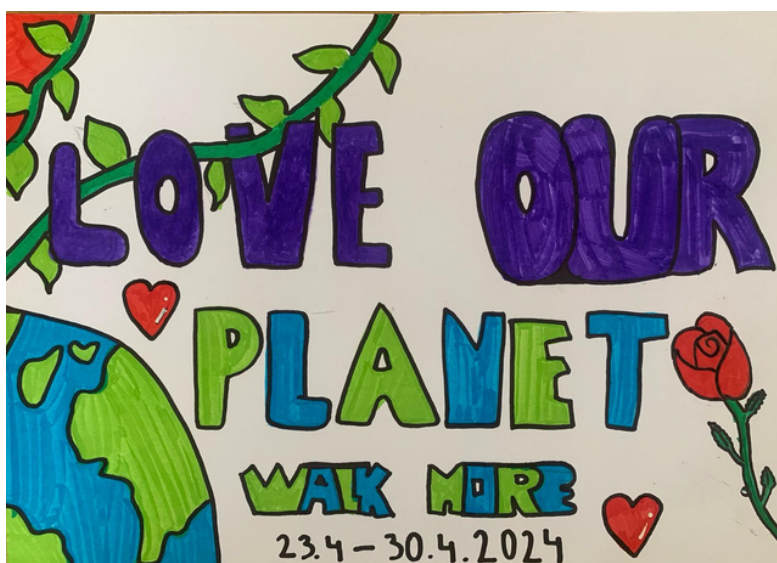 LOVE OUR
PLANET
WALK MORE
23.4-30.4.2024